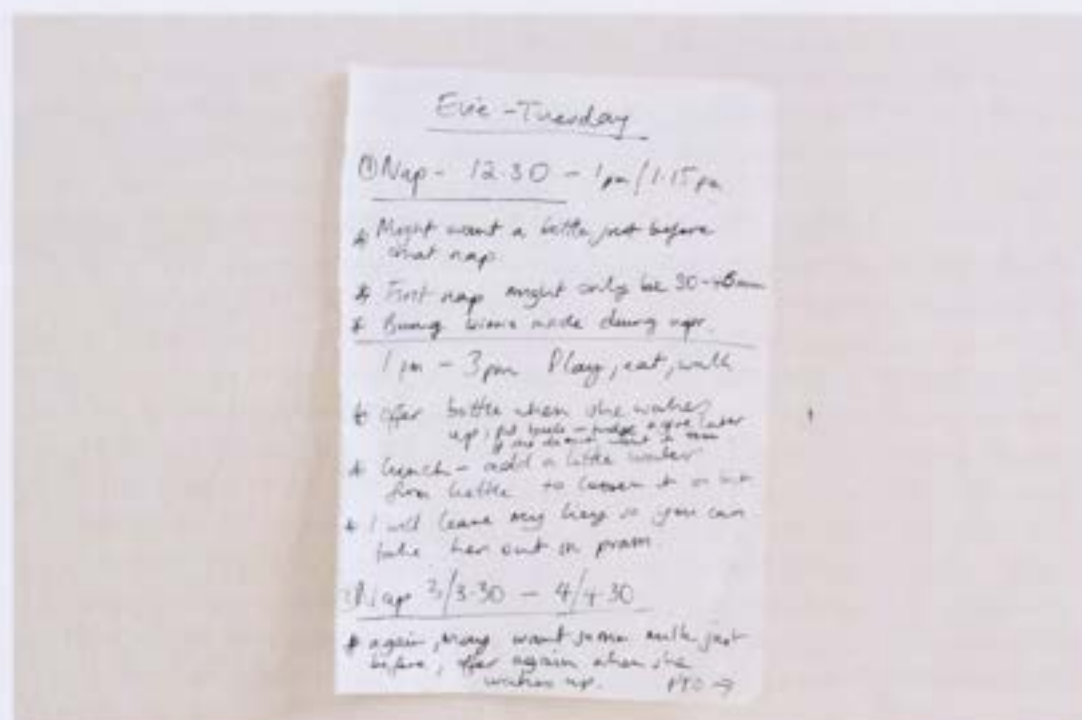 Evie - Tuesday
① Nap - 12.30 - 1pm/1.15pm
* Might want a bottle just before
that nap.
* First nap might only be 30-45min
* made during nap.
1pm - 3pm Play, eat, walk
* offer bottle when she wakes
up, put back in fridge & give later
if she doesn't want it
* Lunch - add a little water
from kettle to loosen it a bit
* I will leave my key so you can
take her out in pram
Nap 3/3.30 - 4/4.30
* again, may want some milk just
before, offer again when she
wakes up. PTO →